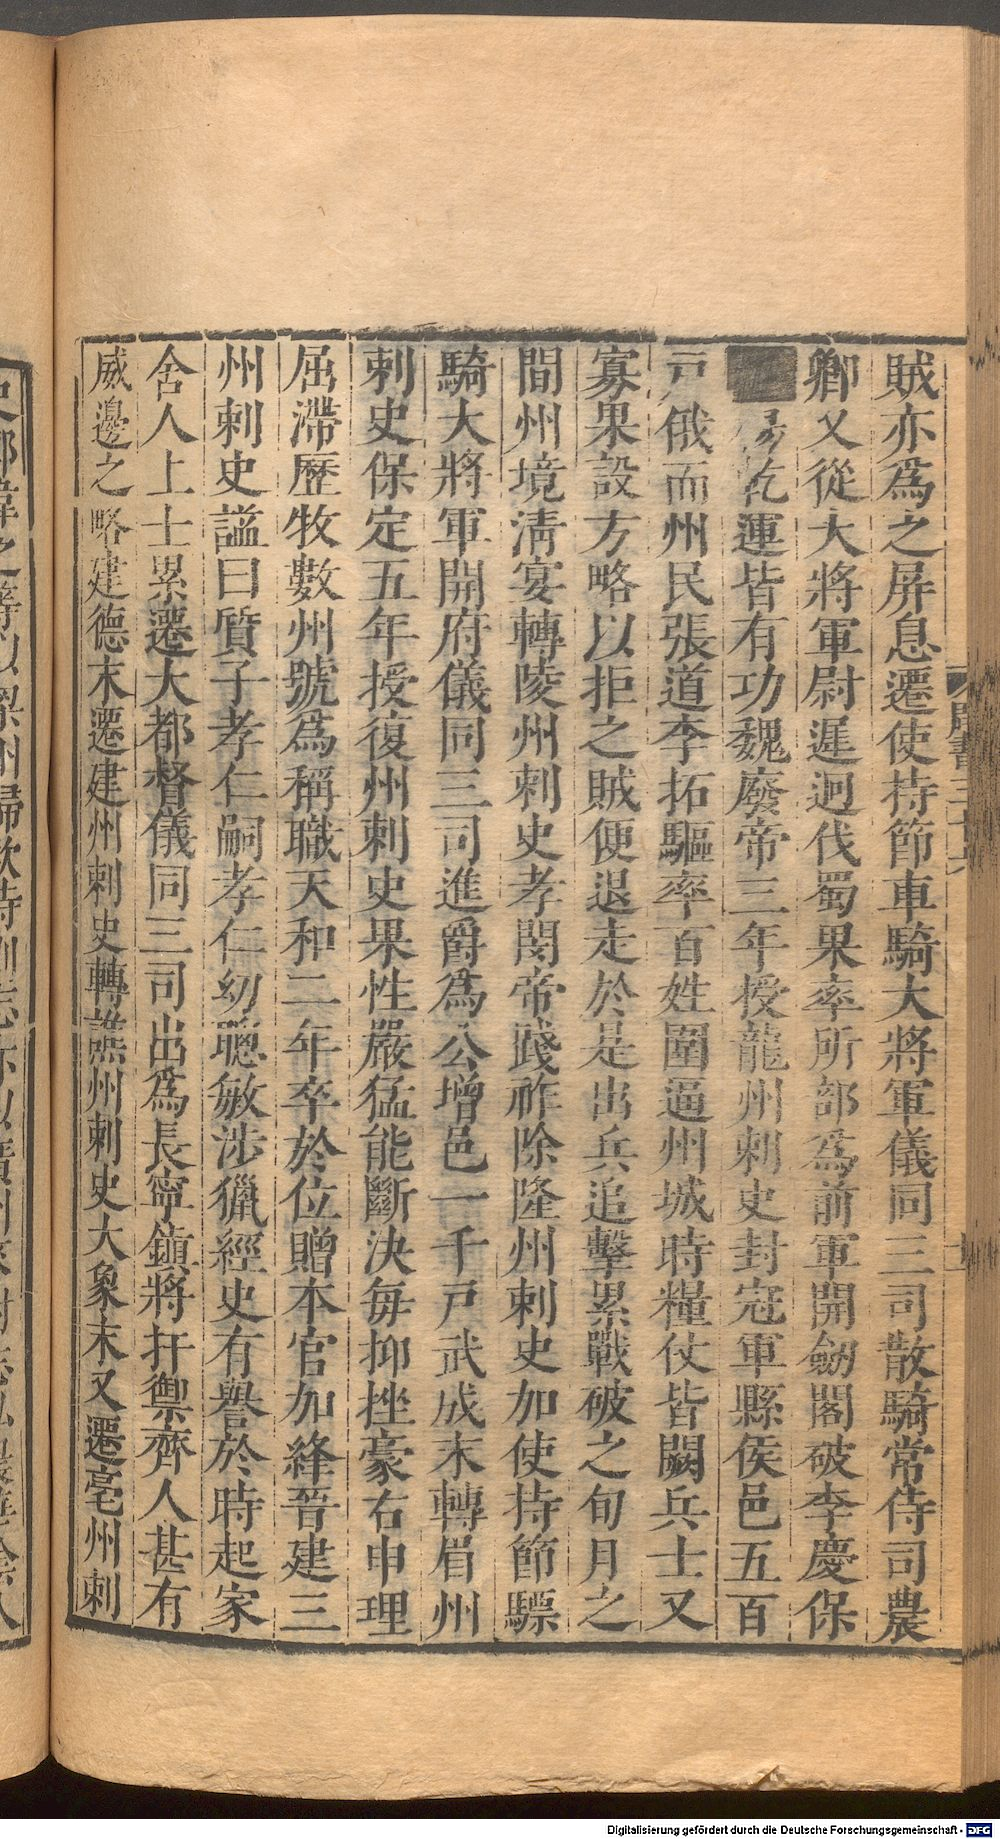 賊亦爲之屏息遷使持節車騎大將軍儀同三司散騎常侍司農
卿又從大將軍尉遲迥伐蜀果率所部爲前軍開劒閣破李慶保
乾運皆有功魏廢帝三年授龍州刺史封冦軍縣侯邑五百
戸俄而州民張道李拓驅率百姓圍逼州城時糧仗皆闕兵士又
寡果設方略以拒之賊便退走於是出兵追擊累戰破之旬月之
間州境清宴轉陵州刺史孝閔帝踐祚除隆州刺史加使持節驃
騎大將軍開府儀同三司進爵爲公增邑一千戸武成末轉眉州
刺史保定五年授復州刺史果性嚴猛能斷決每抑挫豪右申理
屈滯歷牧數州號爲稱職天和二年卒於位贈本官加絳晉建三
州刺史謚曰質子孝仁嗣孝仁幼聰敏涉獵經史有譽於時起家
舍人上士累遷大都督儀同三司出爲長寧鎮將扞禦齊人甚有
威邊之略建德末遷建州刺史轉譙州刺史大象末又遷亳州刺
周書三十六
Digitalisierung gefördert durch die Deutsche Forschungsgemeinschaft - DFG